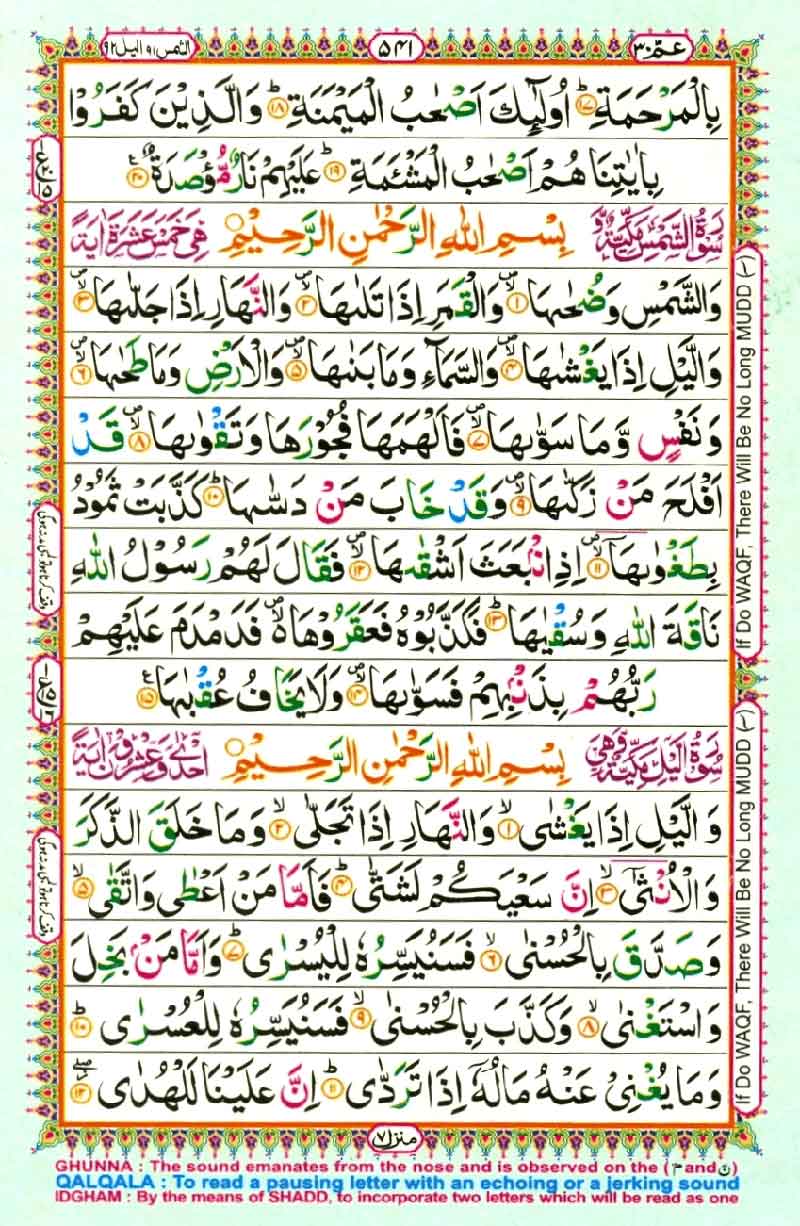 عم ٣٠
٥٤١
الشمس ٩١ اليل ٩٢
بِالْمَرْحَمَةِ ؕ۝۱۷ اُولٰٓئِكَ اَصْحٰبُ الْمَيْمَنَةِ ؕ۝۱۸ وَالَّذِيْنَ كَفَرُوْا
بِاٰيٰتِنَا هُمْ اَصْحٰبُ الْمَشْـَٔمَةِ ؕ۝۱۹ عَلَيْهِمْ نَارٌ مُّؤْصَدَةٌ ۝۲۰
سُوْرَةُ الشَّمْسِ مَكِّيَّةٌ وَّ بِسْمِ اللّٰهِ الرَّحْمٰنِ الرَّحِيْمِ هِيَ خَمْسَ عَشْرَةَ اٰيَةً
وَالشَّمْسِ وَضُحٰىهَا ۝۱ وَالْقَمَرِ اِذَا تَلٰىهَا ۝۲ وَالنَّهَارِ اِذَا جَلّٰىهَا ۝۳
وَالَّيْلِ اِذَا يَغْشٰىهَا ۝۴ وَالسَّمَآءِ وَمَا بَنٰىهَا ۝۵ وَالْاَرْضِ وَمَا طَحٰىهَا ۝۶
وَنَفْسٍ وَّمَا سَوّٰىهَا ۝۷ فَاَلْهَمَهَا فُجُوْرَهَا وَتَقْوٰىهَا ۝۸ قَدْ
اَفْلَحَ مَنْ زَكّٰىهَا ۝۹ وَقَدْ خَابَ مَنْ دَسّٰىهَا ؕ۝۱۰ كَذَّبَتْ ثَمُوْدُ
بِطَغْوٰىهَاۤ ۝۱۱ اِذِ انْۢبَعَثَ اَشْقٰىهَا ۝۱۲ فَقَالَ لَهُمْ رَسُوْلُ اللّٰهِ
نَاقَةَ اللّٰهِ وَسُقْيٰهَا ؕ۝۱۳ فَكَذَّبُوْهُ فَعَقَرُوْهَا فَدَمْدَمَ عَلَيْهِمْ
رَبُّهُمْ بِذَنْۢبِهِمْ فَسَوّٰىهَا ۝۱۴ وَلَا يَخَافُ عُقْبٰهَا ۝۱۵
سُوْرَةُ الَّيْلِ مَكِّيَّةٌ وَّهِيَ بِسْمِ اللّٰهِ الرَّحْمٰنِ الرَّحِيْمِ اِحْدٰى وَعِشْرُوْنَ اٰيَةً
وَالَّيْلِ اِذَا يَغْشٰى ۙ۝۱ وَالنَّهَارِ اِذَا تَجَلّٰى ۙ۝۲ وَمَا خَلَقَ الذَّكَرَ
وَالْاُنْثٰىۤ ۙ۝۳ اِنَّ سَعْيَكُمْ لَشَتّٰى ؕ۝۴ فَاَمَّا مَنْ اَعْطٰى وَاتَّقٰى ۙ۝۵
وَصَدَّقَ بِالْحُسْنٰى ۙ۝۶ فَسَنُيَسِّرُهٗ لِلْيُسْرٰى ؕ۝۷ وَاَمَّا مَنْۢ بَخِلَ
وَاسْتَغْنٰى ۙ۝۸ وَكَذَّبَ بِالْحُسْنٰى ۙ۝۹ فَسَنُيَسِّرُهٗ لِلْعُسْرٰى ؕ۝۱۰
وَمَا يُغْنِيْ عَنْهُ مَالُهٗۤ اِذَا تَرَدّٰى ؕ۝۱۱ اِنَّ عَلَيْنَا لَلْهُدٰى ۝۱۲
If Do WAQF, There Will Be No Long MUDD (~)
If Do WAQF, There Will Be No Long MUDD (~)
منزل ٧
GHUNNA : The sound emanates from the nose and is observed on the (م and ن)
QALQALA : To read a pausing letter with an echoing or a jerking sound
IDGHAM : By the means of SHADD, to incorporate two letters which will be read as one